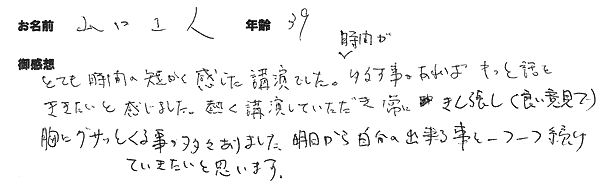 お名前 山口 正人 年齢 39
時間が
御感想 とても時間の短かく感じた講演でした。ゆるす事であればもっと話を
ききたいと感じました。熱く講演していただき常にきん張し(良い意見で)
胸にグサっとくる事が多々ありました。明日から自分の出来る事を一つ一つ続け
ていきたいと思います。